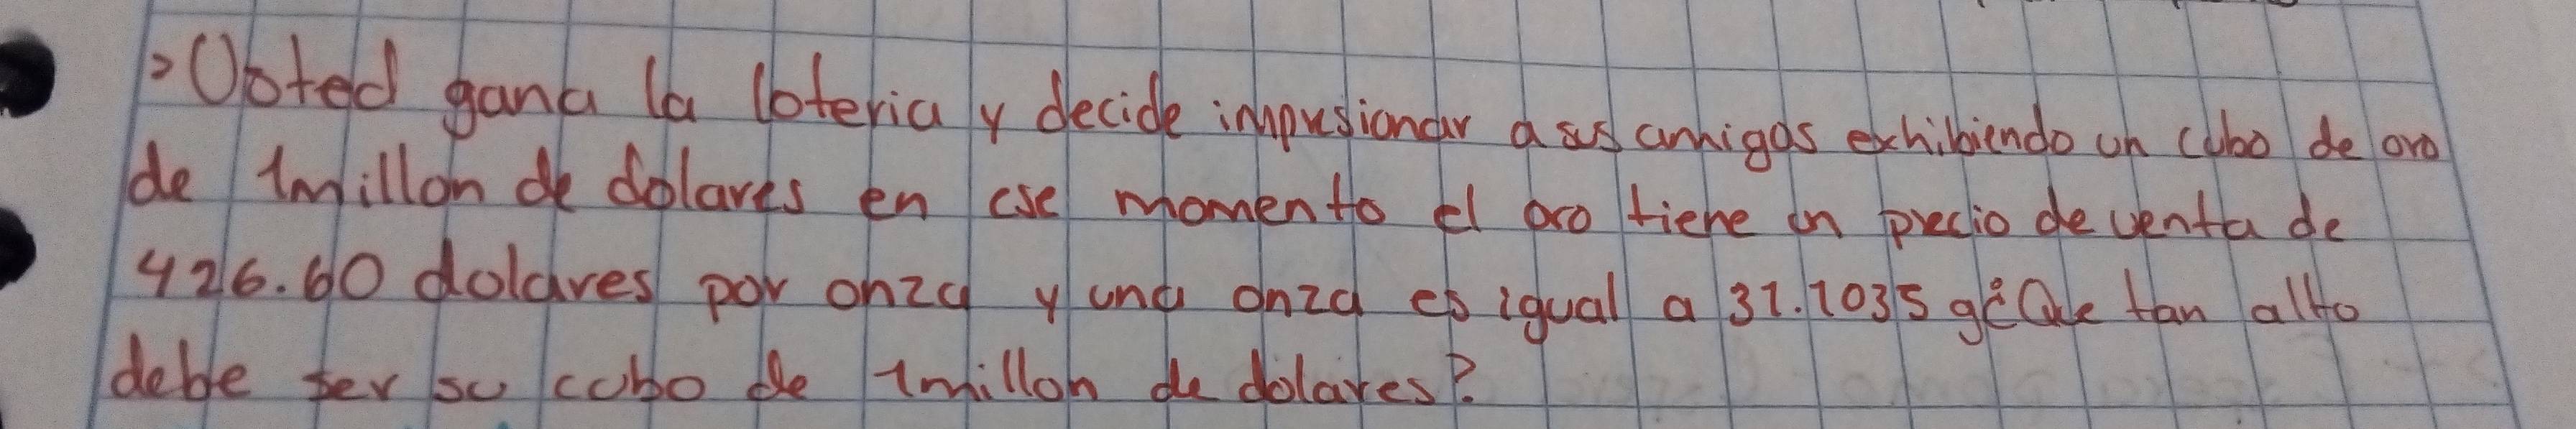 >Usted gana la loteria y decide impresionar a sus amigos exhibiendo un cubo de oro
de 1millon de dolares en ese momento el oro tiene un precio de venta de
426.60 dolares por onza y una onza es igual a 31.1035 g¿Que tan alto
debe ser su cubo de 1millon de dolares?